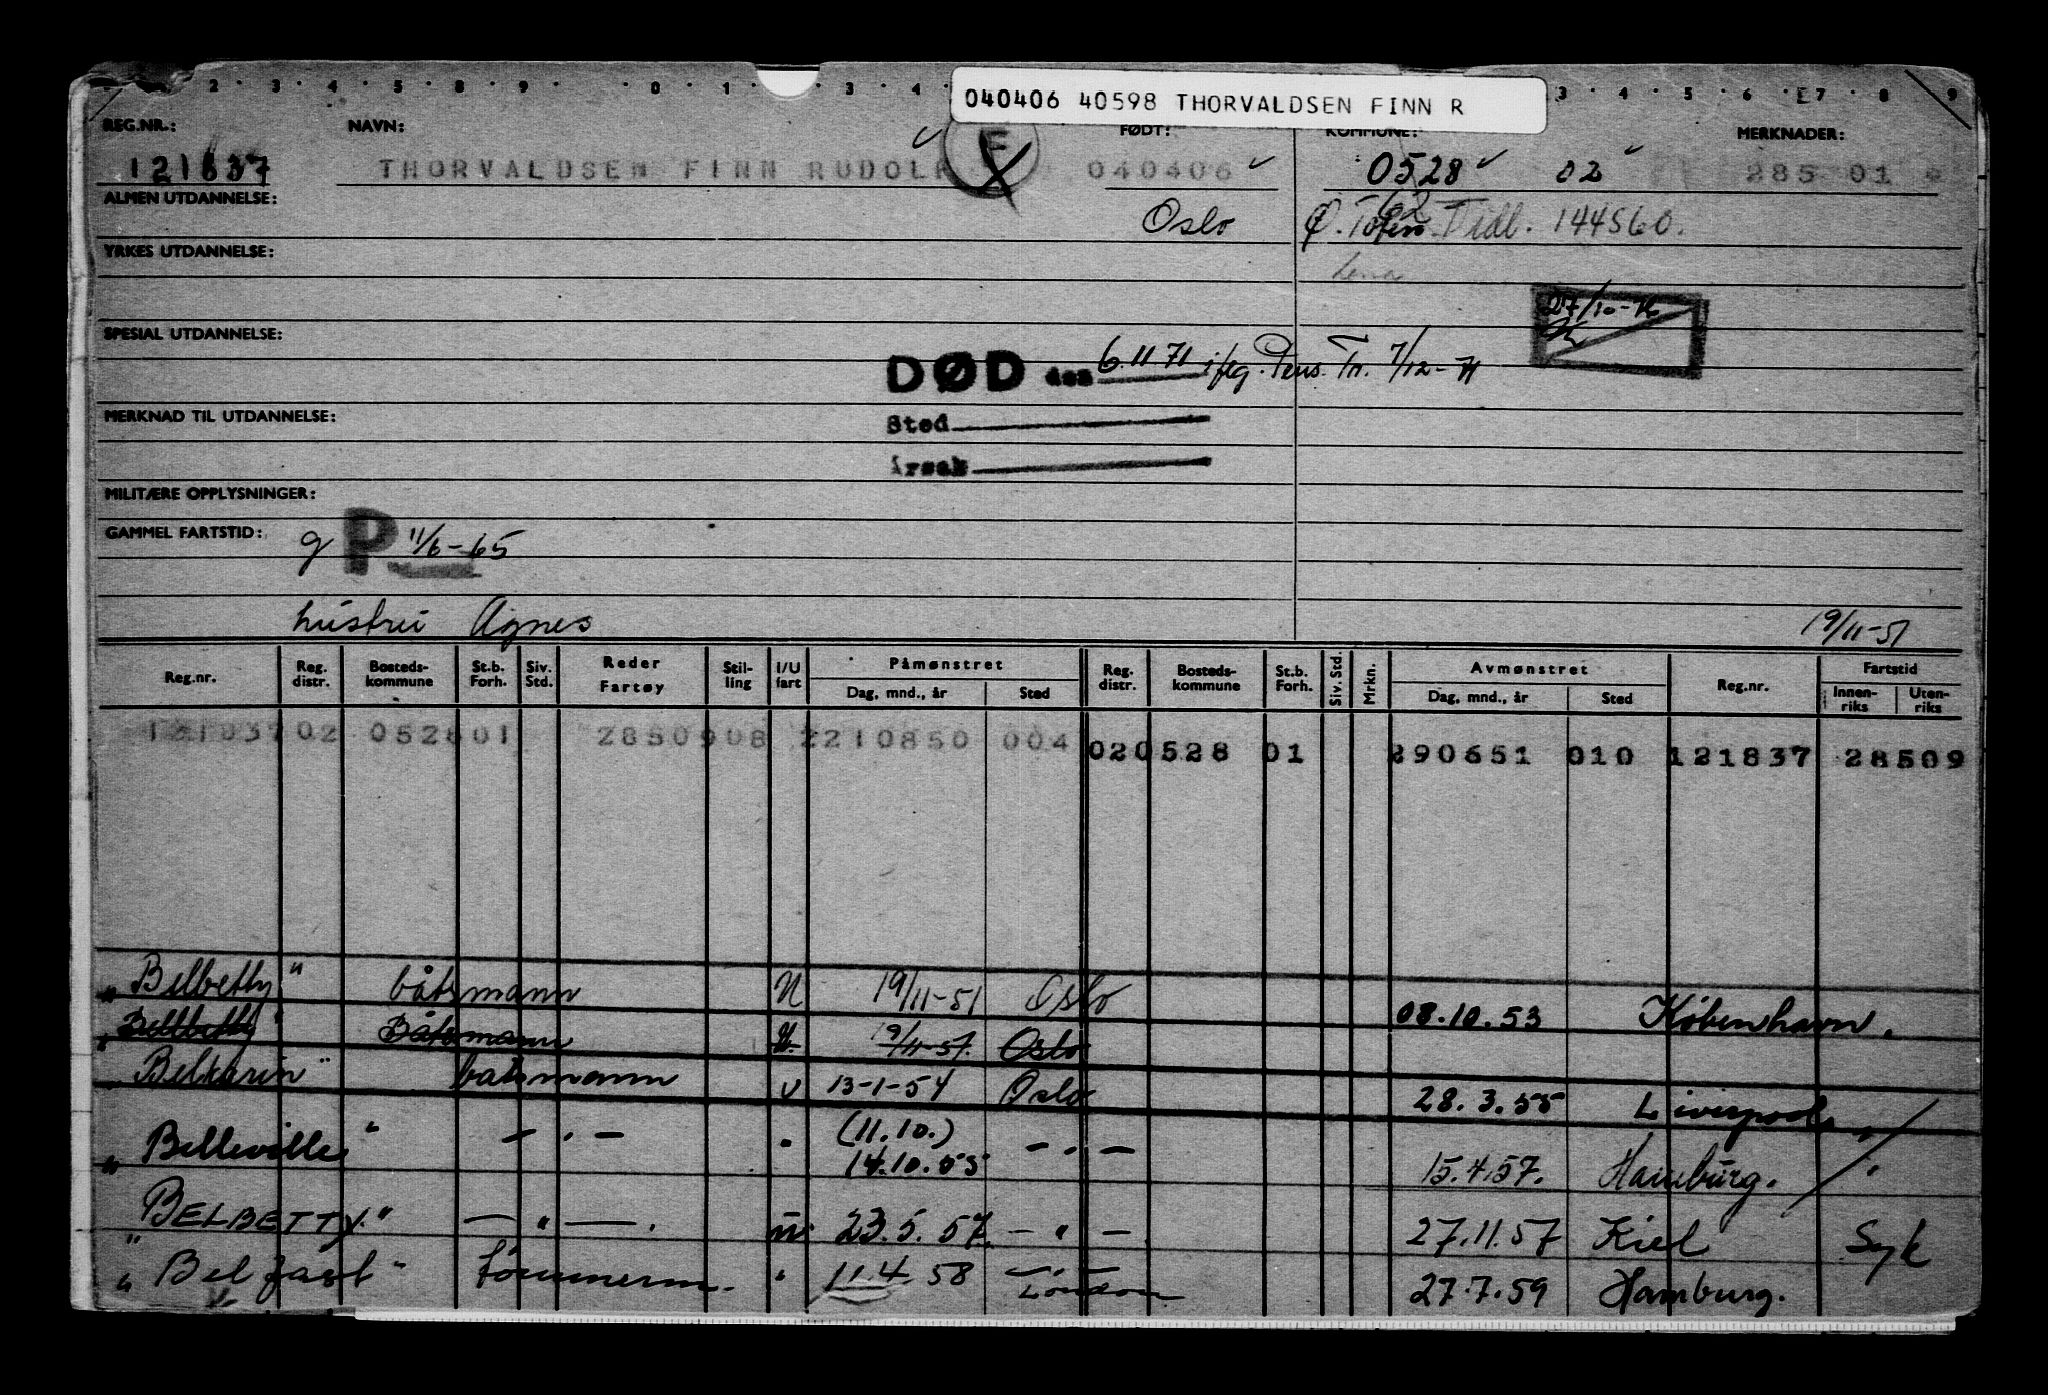 2 3 4 5 8 9 0 1 3 4 3 4 5 6 7 8 9
040406 40598 THORVALDSEN FINN R
REG.NR.: NAVN: FØDT: KOMMUNE: MERKNADER:
121837 THORVALDSEN FINN RUDOLF 040406 0528 02 285 01
ALMEN UTDANNELSE: Oslo Ø. Toten Tidl. 144560.
62
YRKES UTDANNELSE: Lena
27/10-76
SPESIAL UTDANNELSE:
DØD den 6.11 71 iføg. Pens. Tr. 7/12-71
MERKNAD TIL UTDANNELSE: Sted
Årsak
MILITÆRE OPPLYSNINGER:
GAMMEL FARTSTID: g P 11/6-65
hustru Agnes 19/11-51
Reg.nr. Reg. distr. Bosteds-kommune St.b. Forh. Siv. Std. Reder Fartøy Stil-ling I/U fart Påmønstret Dag, mnd., år Sted Reg. distr. Bosteds-kommune St.b. Forh. Siv. Std. Mrkn. Avmønstret Dag, mnd., år Sted Reg.nr. Fartstid Innen-riks Uten-riks
121837 02 0528 01 2850908 2210850 004 02 0528 01 290651 010 121837 28509
"Belbetty" båtsmann U 19/11-51 Oslo 08.10.53 København.
"Belbetty" Båtsmann U. 19/11-57. Oslo
"Belkarin" båtsmann U 13-1-54 Oslo 28.3.55 Liverpool
"Belleville" - . - " (11.10.) 14.10.55 - . - 15.4.57. Hamburg. "
"BELBETTY." — " —. U. 23.5.57. - " - 27.11.57 Kiel Syk
"Belfast" tømmerm. " 11.4.58 London 27.7.59 Hamburg.